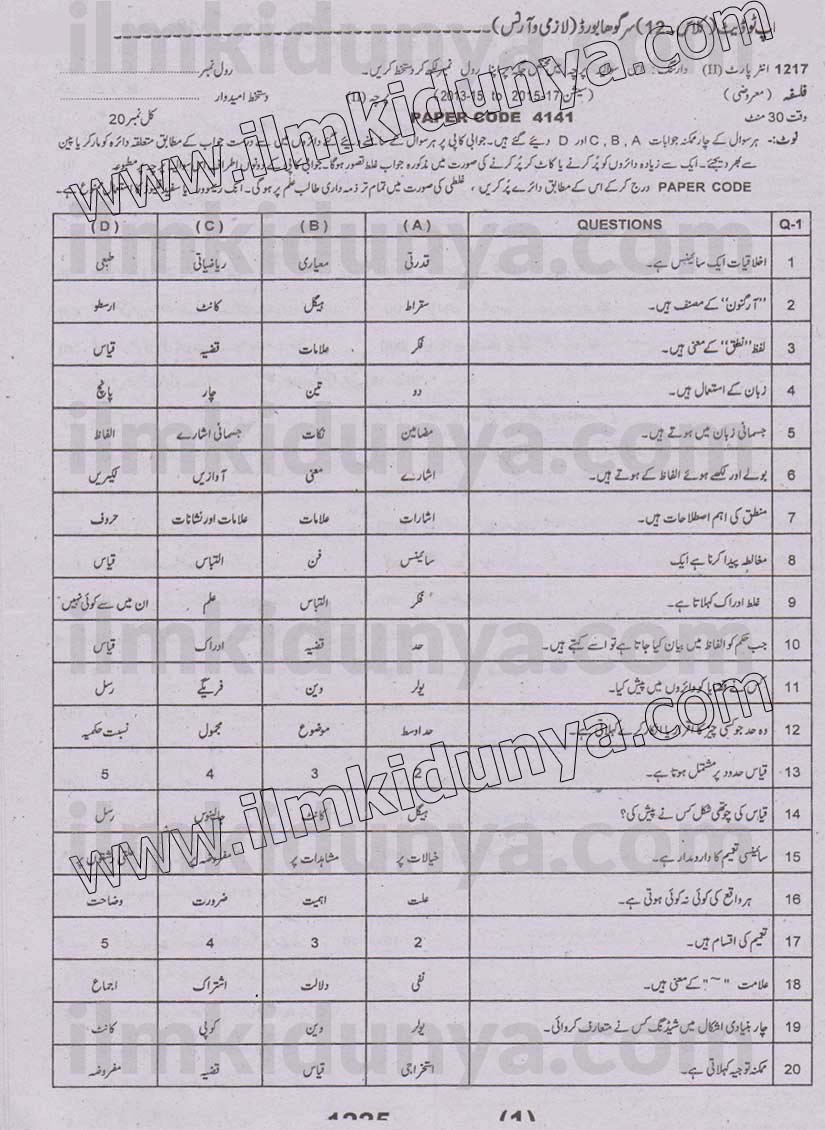 اپ ٹو ڈیٹ (کلاس 12) سرگودھا بورڈ (لازمی و آرٹس)
1217 انٹر پارٹ (II) وارننگ: اس سوالیہ پرچہ رول نمبر لکھ کر دستخط کریں۔ رول نمبر
فلسفہ (معروضی) (سیشن 2013-15 to 2015-17) پرچہ (II) دستخط امیدوار
وقت 30 منٹ PAPER CODE 4141 کل نمبر 20
نوٹ:- ہر سوال کے چار ممکنہ جوابات A ,B ,C اور D دیئے گئے ہیں۔ جوابی کاپی پر ہر سوال کے سامنے دیئے گئے دائروں میں سے درست جواب کے مطابق متعلقہ دائرہ کو مارکر یا پین
سے بھر دیجئے۔ ایک سے زیادہ دائروں کو پُر کرنے یا کاٹ کر پُر کرنے کی صورت میں مذکورہ جواب غلط تصور ہوگا۔ جوابی کاپی کے دونوں اطراف مطبوعہ
PAPER CODE درج کرکے اس کے مطابق دائرے پُر کریں، غلطی کی صورت میں تمام تر ذمہ داری طالب علم پر ہوگی۔ انک ریموور یا سفید
Q-1 QUESTIONS (A) (B) (C) (D)
1 اخلاقیات ایک سائینس ہے۔ قدرتی معیاری ریاضیاتی طبعی
2 "آرگنون" کے مصنف ہیں۔ سقراط ہیگل کانٹ ارسطو
3 لفظ "نطق" کے معنی ہیں۔ فکر علامات قضیہ قیاس
4 زبان کے استعمال ہیں۔ دو تین چار پانچ
5 جسمانی زبان میں ہوتے ہیں۔ مضامین نکات جسمانی اشارے الفاظ
6 بولے اور لکھے ہوئے الفاظ کے ہوتے ہیں۔ اشارے معنی آوازیں لکیریں
7 منطق کی اہم اصطلاحات ہیں۔ اشارات علامات علامات اور نشانات حروف
8 مغالطہ پیدا کرنا ہے ایک سائینس فن التباس قیاس
9 غلط ادراک کہلاتا ہے۔ فکر التباس علم ان میں سے کوئی نہیں
10 جب حکم کو الفاظ میں بیان کیا جاتا ہے تو اسے کہتے ہیں۔ حد قضیہ ادراک قیاس
11 کس نے قضایا کو دائروں میں پیش کیا۔ یولر وین فریگے رسل
12 وہ حد جو کسی چیز کا اقرار یا انکار کرے کہلاتی ہے۔ حد اوسط موضوع محمول نسبت حکمیہ
13 قیاس حدود پر مشتمل ہوتا ہے۔ 2 3 4 5
14 قیاس کی چوتھی شکل کس نے پیش کی؟ ہیگل کانٹ جالینوس رسل
15 سائینسی تعمیم کا دارومدار ہے۔ خیالات پر مشاہدات پر
16 ہر واقع کی کوئی نہ کوئی ہوتی ہے۔ علت اہمیت ضرورت وضاحت
17 تعمیم کی اقسام ہیں۔ 2 3 4 5
18 علامت "~" کے معنی ہیں۔ نفی دلالت اشتراک اجماع
19 چار بنیادی اشکال میں شیڈنگ کس نے متعارف کروائی۔ یولر وین کوپی کانٹ
20 ممکنہ توجیہ کہلاتی ہے۔ استخراجی قیاس قضیہ مفروضہ
1225 (1)
www.ilmkidunya.com
www.ilmkidunya.com
ilmkidunya.com
ilmkidunya.com
ilmkidunya.com
ilmkidunya.com
ilmkidunya.com
ilmkidunya.com